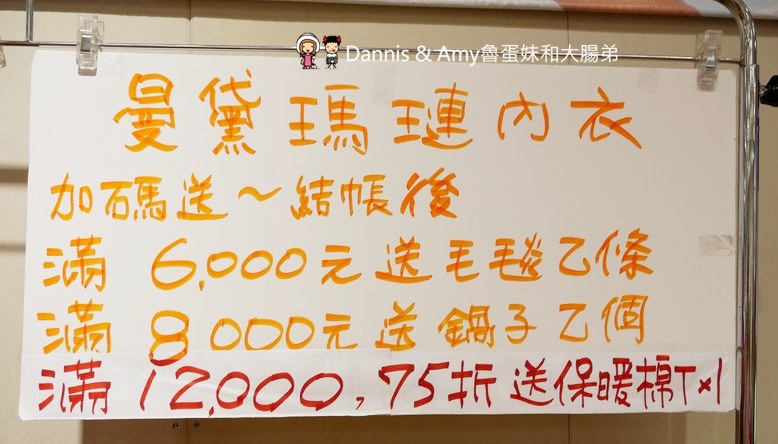 Dannis & Amy魯蛋妹和大腸弟
曼黛瑪璉內衣
加碼送～結帳後
滿 6,000元送毛毯乙條
滿 8,000元送鍋子乙個
滿 12,000，75折 送保暖棉T×1